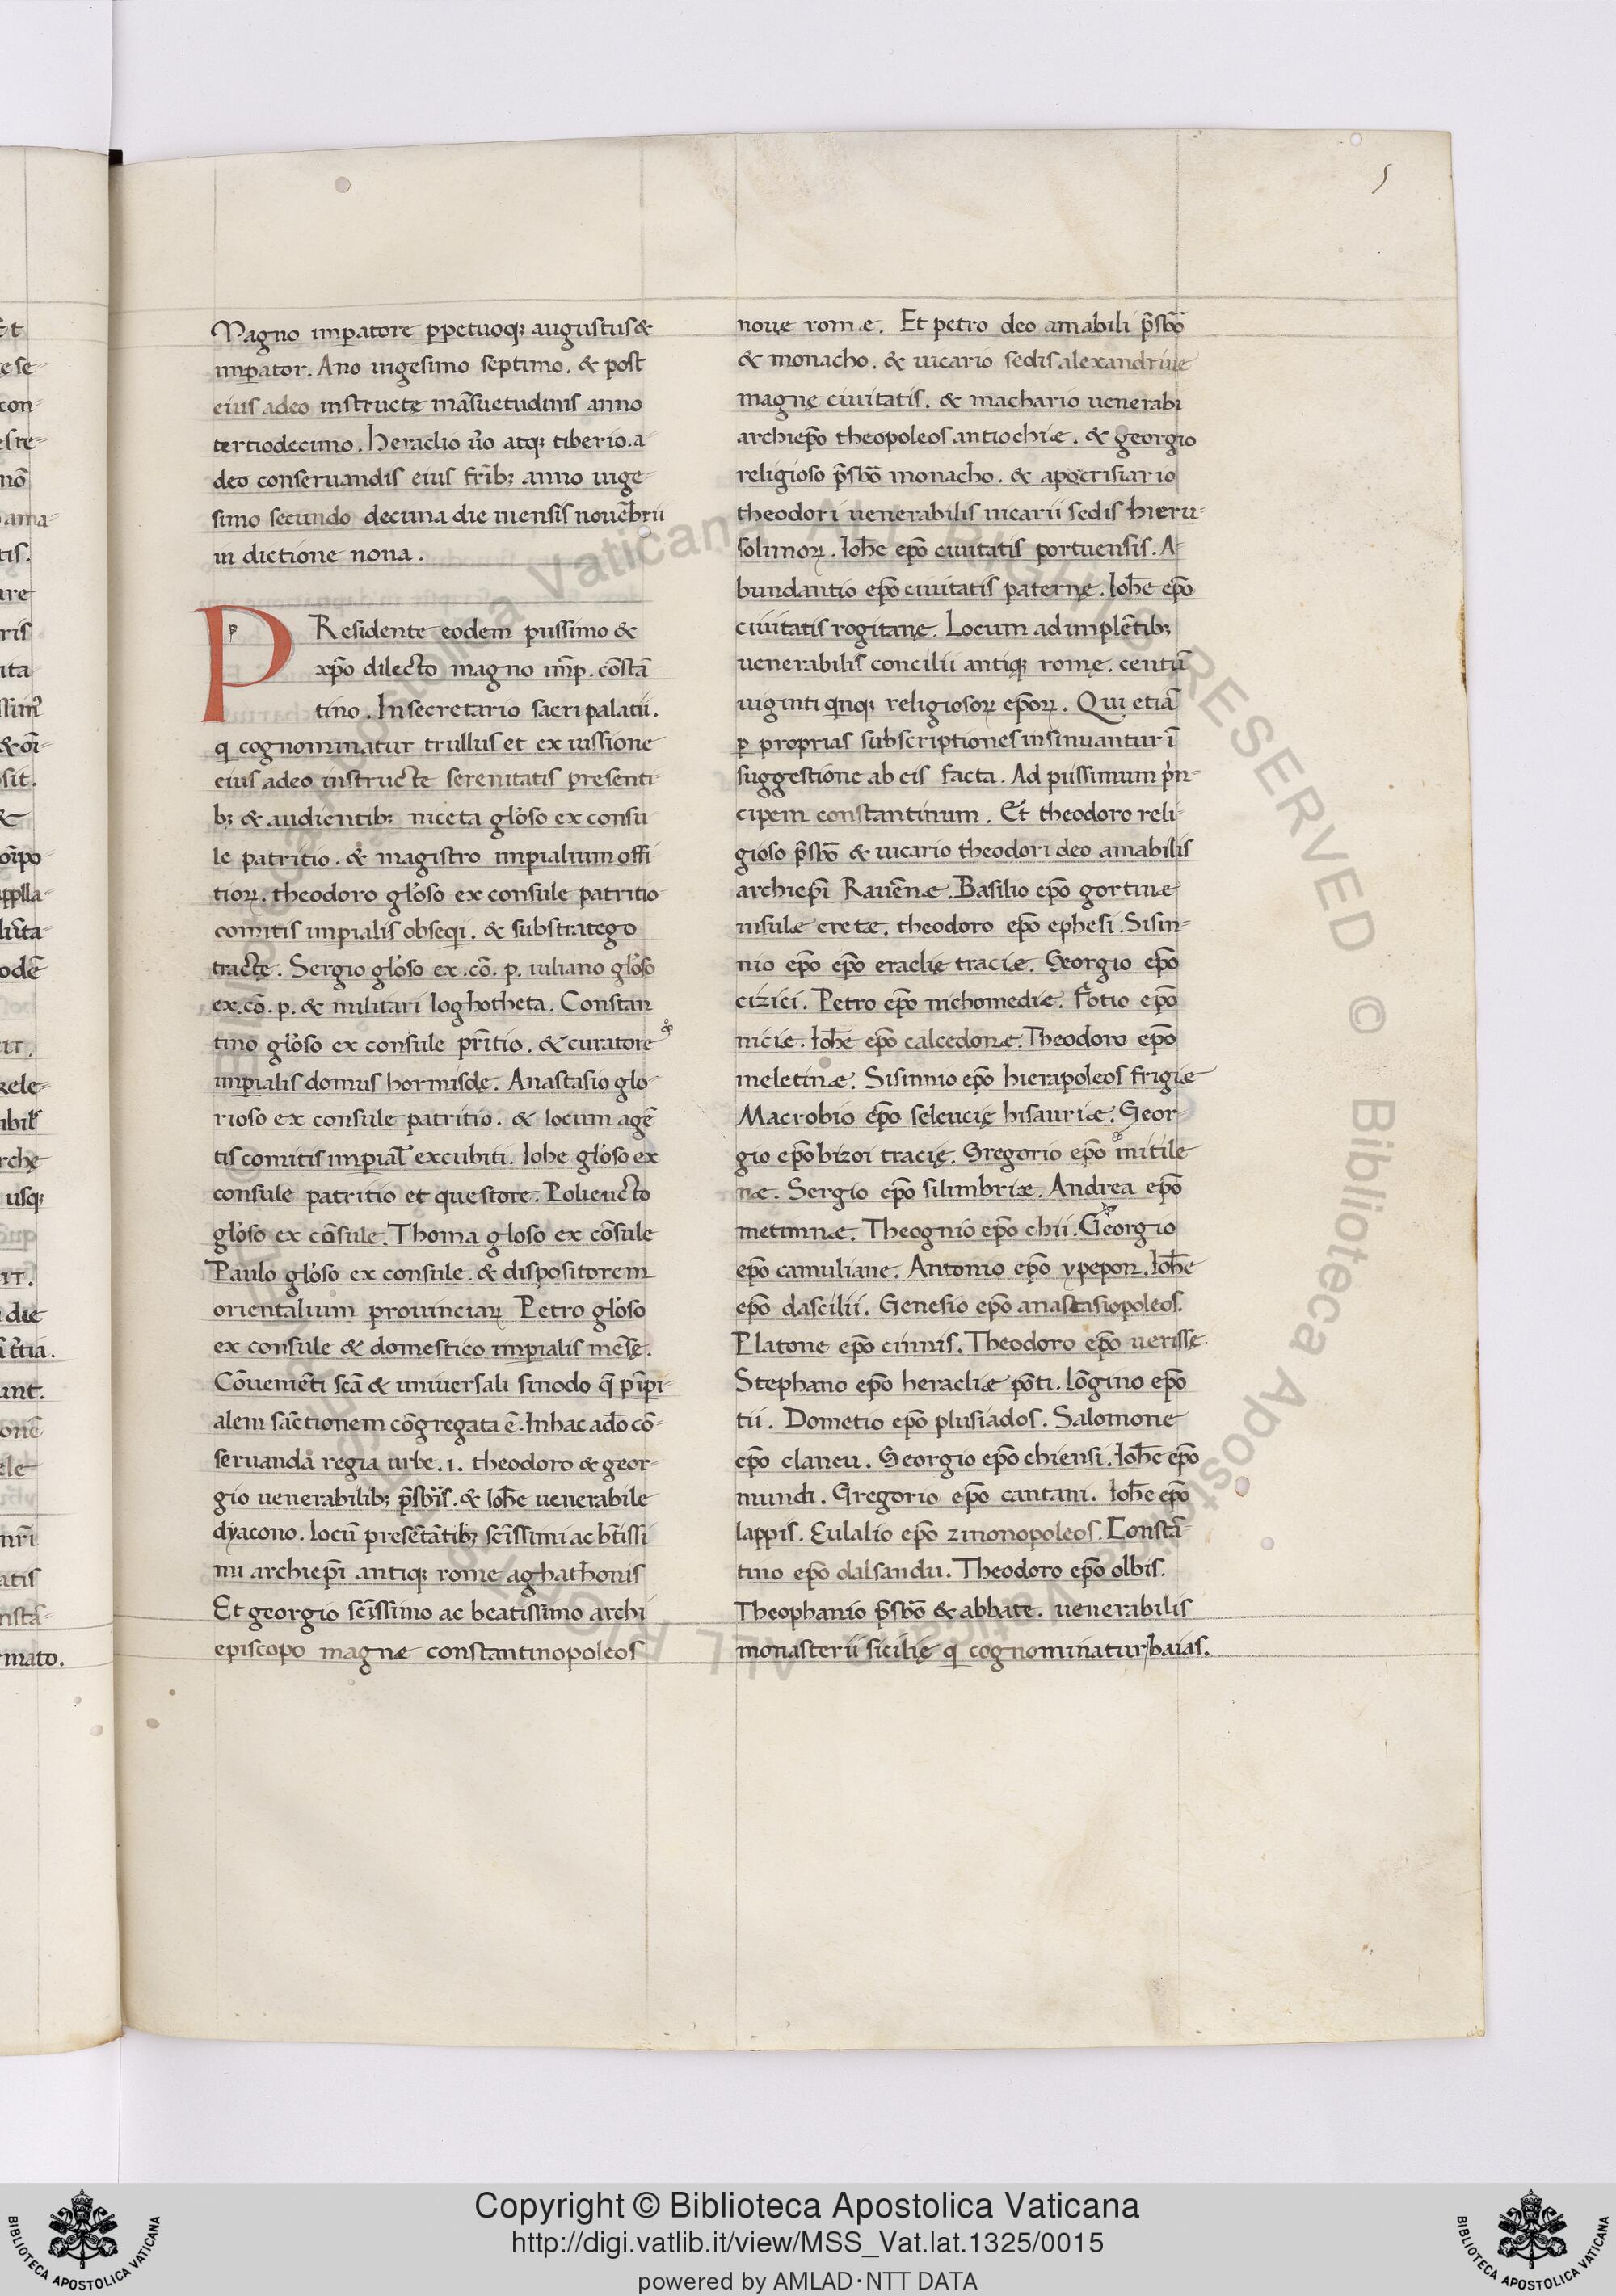 5
Magno imꝑatore ꝑpetuoqꝫ augustus &
imꝑator. Ano uigesimo septimo. & post
eius adeo instructę mãsuetudinis anno
tertiodecimo. heraclio ũo atqꝫ tiberio. a
deo conseruandis eius fr̃ibꝫ anno uige-
simo secundo decima die mensis nouẽbrii
in dictione nona.
P
p
Residente eodem piissimo &
xp̃o dilecto magno im̃p. cõstã
tino. In secretario sacri palatii.
q̃ cognominatur trullus et ex iussione
eius adeo instructe serenitatis presenti-
bꝫ & audientibꝫ niceta glõso ex consu
le patritio. & magistro imꝑialium offi
tioꝝ. theodoro glõso ex consule patritio
comitis imꝑialis obseqi. & substratego
tractę. Sergio glõso ex. cõ. p. iuliano glõso
ex. cõ. p. & militari loghotheta. Constan
tino glõso ex consule pr̃itio. & curatore
imꝑialis domus hormisdę. Anastasio glo-
rioso ex consule patritio. & locum agẽ
tis comitis imꝑial̃ excubiti. Iohe glõso ex
consule patritio et questore. Polieucto
glõso ex cõsule. Thoma gloso ex cõsule
Paulo glõso ex consule. & dispositorem
orientalium prouinciaꝝ Petro glõso
ex consule & domestico imꝑialis mẽsę.
Cõueniẽti scã & uniuersali sinodo q̃ p̃ipi-
alem sãctionem cõgregata ẽ. In hac ado cõ-
seruanda regia urbe. i. theodoro & geor-
gio uenerabilibꝫ p̃sbĩs. & Ioh̃e uenerabile
dyacono. locũ presẽtãtibꝫ scĩssimi ac bt̃issi
mi archiep̃i antiqꝫ rome aghathonis
Et georgio scĩssimo ac beatissimo archi
episcopo magnæ constantinopoleos
nouę romæ. Et petro deo amabili p̃sbõ
& monacho. & uicario sedis alexandrinę
magnę ciuitatis. & machario uenerabi
archiep̃o theopoleos antiochiæ. & georgio
religioso p̃sbõ monacho. & apocrisiario
theodori uenerabilis uicarii sedis hieru-
solimoꝝ. Ioh̃e ep̃o ciuitatis portuensis. A-
bundantio ep̃o ciuitatis paternę. Ioh̃e ep̃o
ciuitatis rogitanę. Locum ad implẽtibꝫ
uenerabilis concilii antiqꝫ romę. centũ
uiginti qnqꝫ religiosoꝝ ep̃oꝝ. Qui etiã
ꝑ proprias subscriptiones insinuantur ĩ
suggestione ab eis facta. Ad piissimum p̃n-
cipem constantinum. Et theodoro reli-
gioso p̃sbõ & uicario theodori deo amabilis
archiep̃i Rauẽnæ. Basilio ep̃o gortinæ
insulæ cretæ. theodoro ep̃o ephesi. Sisin-
nio ep̃o ep̃o eraclię traciæ. Georgio ep̃o
cizici. Petro ep̃o nichomediæ. Fotio ep̃o
niciæ. Ioh̃e ep̃o calcedonæ. Theodoro ep̃o
meletinæ. Sisinnio ep̃o hierapoleos frigiæ
Macrobio ep̃o seleucię hisauriæ. Geor-
gio ep̃o bizoi tracię. Gregorio ep̃o mitile
næ. Sergio ep̃o silimbriæ. Andrea ep̃o
metimnæ. Theognio ep̃o chii. Georgio
ep̃o camuliane. Antonio ep̃o ypepon. Ioh̃e
ep̃o dascilii. Genesio ep̃o anastasiopoleos.
Platone ep̃o cinnis. Theodoro ep̃o uerissę
Stephano ep̃o heracliæ põti. Lõgino ep̃o
tii. Dometio ep̃o plusiados. Salomone
ep̃o claneu. Georgio ep̃o chiensi. Ioh̃e ep̃o
mundi. Gregorio ep̃o cantani. Ioh̃e ep̃o
lappis. Eulalio ep̃o zinonopoleos. Constã-
tino ep̃o dalsandu. Theodoro ep̃o olbis.
Theophanio p̃sbõ & abbate. uenerabilis
monasterii sicilię q̃ cognominatur baias.
Copyright © Biblioteca Apostolica Vaticana
http://digi.vatlib.it/view/MSS_Vat.lat.1325/0015
powered by AMLAD·NTT DATA